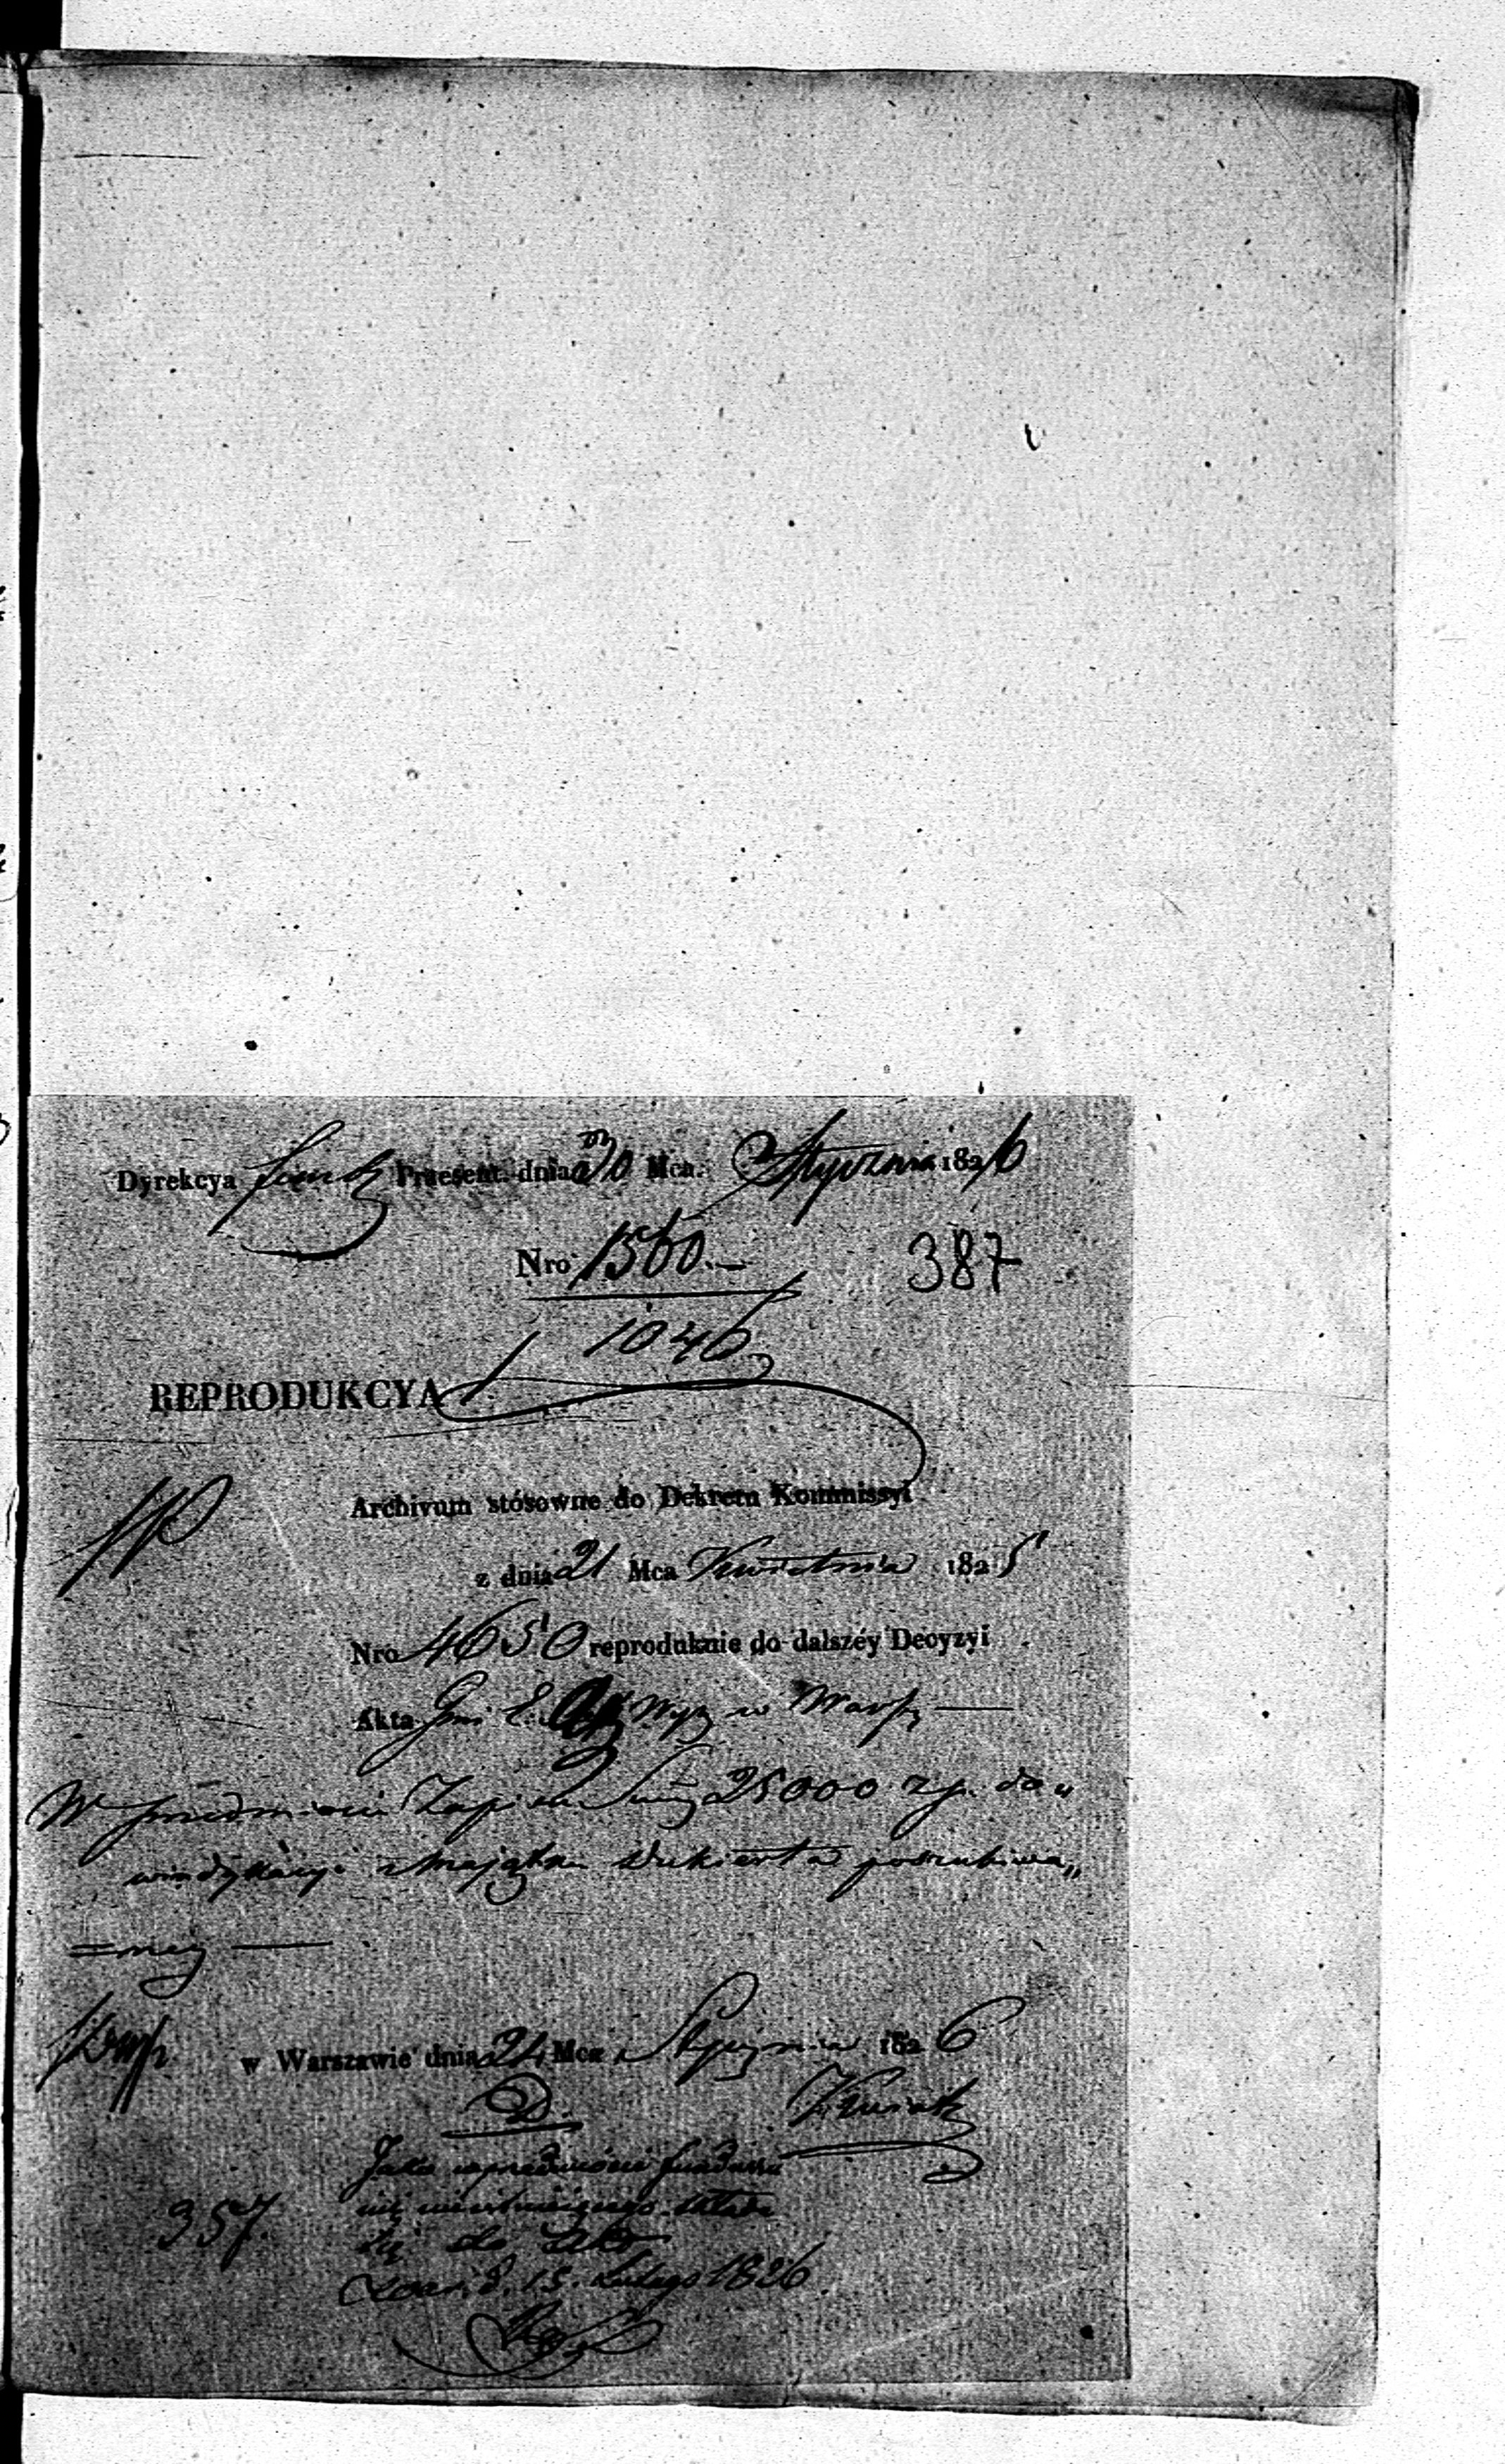 Dyrekcya Praesent. dnia 30 Mca. Stycznia 1826
Nro 1560.—
387
1046
REPRODUKCYA
Archivum stósowne do Dekretu Kommissyi
z dnia 21 Mca Kwietnia 1825
Nro 4650 reprodukuie do dalszéy Decyzyi
Akta w Warsz
W przedmiocie Zapisu Summy 25000 zp. do„
windykacyi z Majątku Dukierta poszukiwa„
=ney —
w Warszawie dnia 24 Mca Stycznia 1826
D.
Jako w przedmiocie funduszu
nieistnieiącego składa
się do Akt
357.
Warsz. d. 15. Lutego 1826.